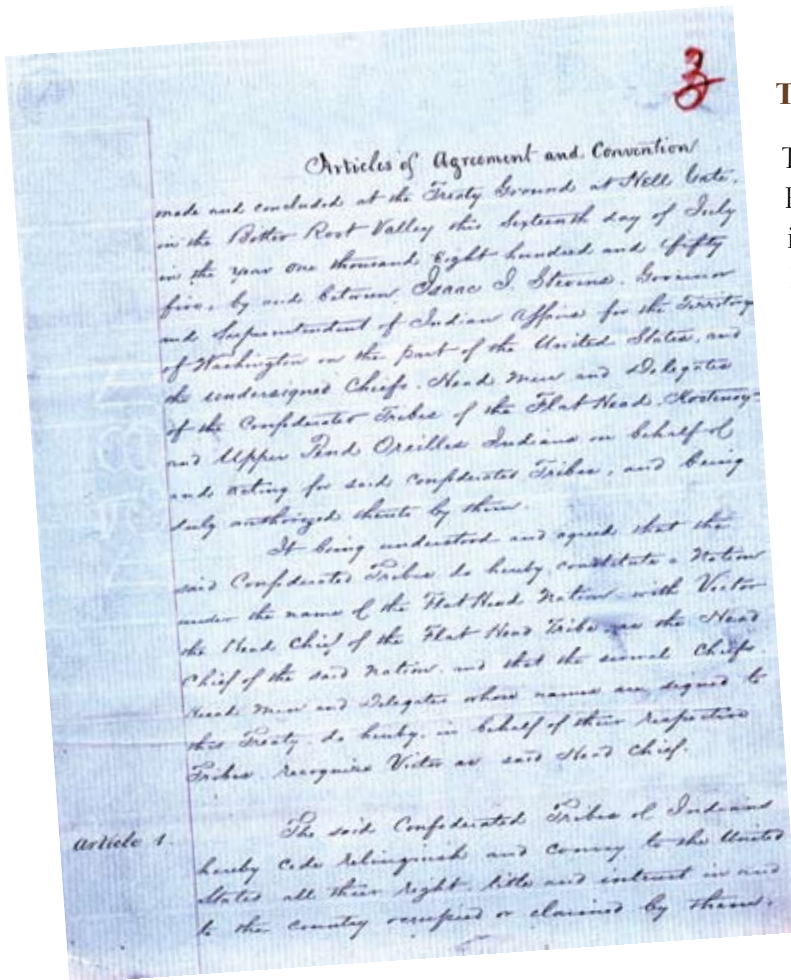 3
Articles of Agreement and Convention
made and concluded at the Treaty Ground at Hell Gate.
in the Bitter Root Valley this Sixteenth day of July
in the year one thousand Eight hundred and fifty
five, by and between Isaac I. Stevens. Governor
and Superintendent of Indian Affairs for the Territory
of Washington on the part of the United States, and
the undersigned Chiefs. Head Men and Delegates
of the Confederated Tribes of the Flat Head. Kootenay
and Upper Pend Oreilles Indians on behalf of
and acting for said confederated Tribes, and being
duly authorized thereto by them.
It being understood and agreed that the
said Confederated Tribes do hereby constitute a Nation
under the name of the Flat Head Nation with Victor
the Head Chief of the Flat Head Tribe as the Head
Chief of the said Nation. and that the several Chiefs.
Head Men and Delegates whose names are signed to
this Treaty. do hereby. in behalf of their respective
Tribes. recognize Victor as said Head Chief.
Article 1. The said Confederated Tribes of Indians
hereby cede relinquish and convey to the United
States all their right. title and interest in and
to the country occupied or claimed by them.
T
T
i